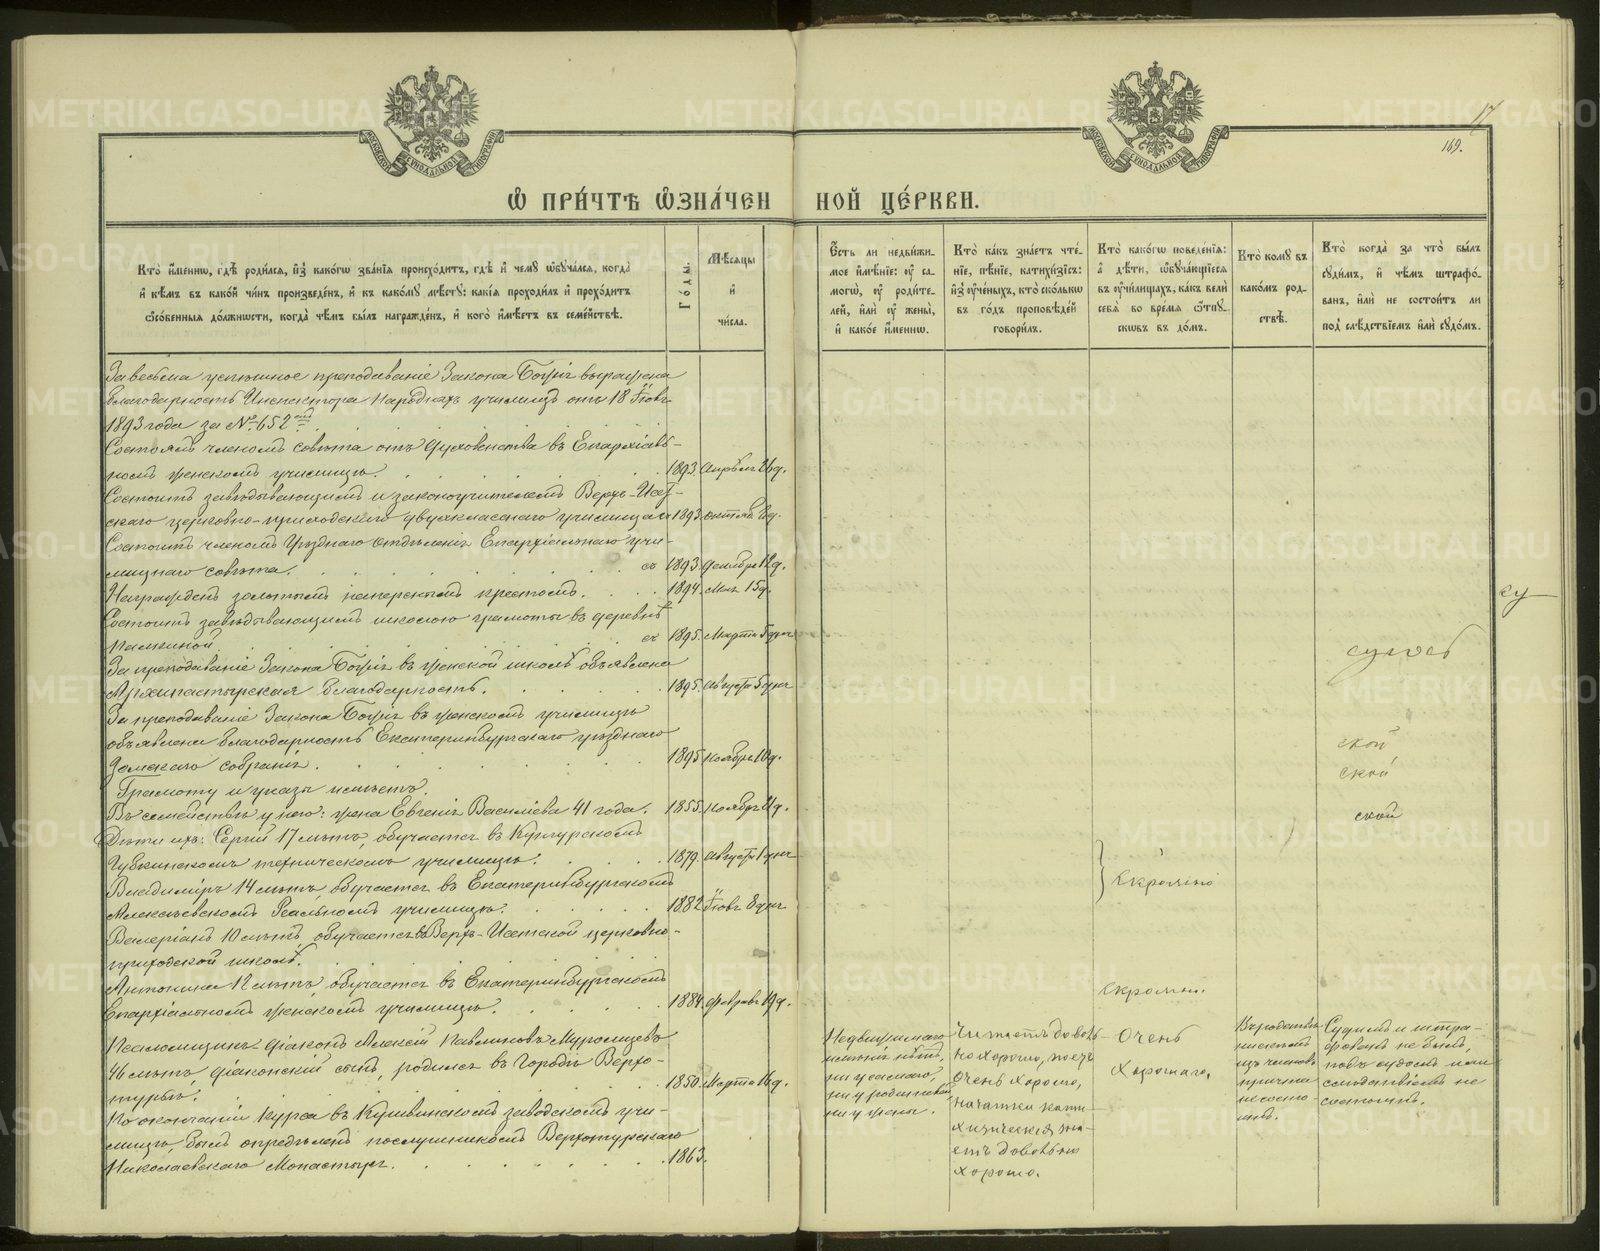 17
169.
Ѡ ПРИ́ЧТѢ ѠЗНА́ЧЕН НОЙ ЦЕ́РКВИ.
Кто̀ и҆́менно, гдѣ̀ роди́лся, и҆з̾ како́гѡ зва́нїя происхо́дитъ, гдѣ̀ и҆ чемꙋ̀ ѡ҆бꙋча́лся, когда̀
и҆ кѣ́мъ въ како́й чи́нъ произведе́нъ, и҆ къ како́мꙋ мѣ́стꙋ: какі́я проходи́лъ и҆ прохо́дитъ
ѻ҆со́бенныя до́лжности, когда̀ чѣ́мъ бы́лъ награжде́нъ, и҆ кого̀ и҆мѣ́етъ въ семе́йствѣ.
Го́ды.
Мѣ́сяцы
и҆
чи́сла.
Е҆́сть ли недви́жи-
мое и҆мѣ́нїе: ᲂу҆ са-
могѡ̀, ᲂу҆ роди́те-
лей, и҆лѝ ᲂу҆ жены̀,
и҆ како́е и҆́менно.
Кто̀ ка́къ зна́етъ чте́-
нїе, пѣ́нїе, катихи́зїсъ:
и҆з̾ ᲂу҆че́ныхъ, кто̀ ско́лькѡ
въ го́дъ проповѣ́дей
говори́лъ.
Кто̀ како́гѡ поведе́нїя:
а҆ дѣ́ти, ѡ҆бꙋча́ющїеся
въ ᲂу҆чи́лищахъ, ка́къ велѝ
себя̀ во вре́мя ѿпꙋ-
сковъ въ до́мъ.
Кто̀ комꙋ̀ въ
како́мъ род-
ствѣ̀.
Кто̀ когда̀ за что̀ бы́лъ
сꙋди́мъ, и҆ чѣ́мъ штрафо́-
ванъ, и҆лѝ не состои́тъ ли
под̾ слѣ́дствїемъ и҆лѝ сꙋдо́мъ.
За весьма успѣшное преподаваніе Закона Божія выражена
благодарность Инспектора Народныхъ училищъ отъ 18 Іюня
1893 года за № 652
Состоялъ членомъ совѣта отъ духовенства въ Епархіаль-
номъ женскомъ училищѣ. 1893. Апрѣля 26 д.
Состоитъ завѣдывающимъ и законоучителемъ Верхъ-Исет-
скаго церковно-приходскаго двухкласснаго училища съ 1893. октяб.
Состоитъ членомъ Уѣзднаго Отдѣленія Епархіальнаго учи-
лищнаго совѣта. съ 1893. декабря 12 д.
Награжденъ золотымъ наперснымъ крестомъ. 1894. Мая 15 д.
Состоитъ завѣдывающимъ школою грамоты въ деревнѣ
Палкиной. съ 1895. Марта 5 дня
За преподаваніе Закона Божія въ женской школѣ объявлена
Архипастырская благодарность. 1895. Августа 5 дня
За преподаваніе Закона Божія въ женскомъ училищѣ
объявлена благодарность Екатеринбургскаго уѣзднаго
Земскаго собранія. 1895 Ноября 10 д.
Грамоту и указы имѣетъ.
Въ семействѣ у него: жена Евгенія Васильева 41 года. 1855. Ноября
Дѣти ихъ: Сергій 17 лѣтъ, обучается въ Кунгурскомъ
Губкинскомъ техническомъ училищѣ. 1879. Августа 1 дня
Владиміръ 14 лѣтъ обучается въ Екатеринбургскомъ
Алексѣевскомъ Реальномъ училищѣ. 1882 Іюня 8 дня
скромно
Валеріанъ 10 лѣтъ, обучается въ Верхъ-Исетской церковно-
приходской школѣ.
Антонина 12 лѣтъ, обучается въ Екатеринбургскомъ
Епархіальномъ женскомъ училищѣ. 1884. Февраля 19 д.
скромно.
Псаломщикъ-діаконъ Алексій Павлиновъ Муромцевъ
46 лѣтъ, діаконскій сынъ, родился въ городѣ Верхо-
турьѣ. 1850. Марта 16 д.
По окончаніи курса въ Кушвинскомъ заводскомъ учи-
лищѣ, былъ опредѣленъ послушникомъ Верхотурскаго
Николаевскаго Монастыря. 1863.
Недвижимаго
имѣнія нѣтъ,
ни у самаго,
ни у родителей,
ни у жены.
Читаетъ доволь-
но хорошо, поетъ
очень хорошо,
начатки кати-
хизическія зна-
етъ довольно
хорошо.
Очень
хорошаго.
Въ родствѣ
ни съ кѣмъ
изъ членовъ
причта
не состо-
итъ.
Судимъ и штра-
фованъ не былъ,
подъ судомъ и
слѣдствіемъ не
состоитъ.
ской
ской
ской
METRIKI.GASO-URAL.RU